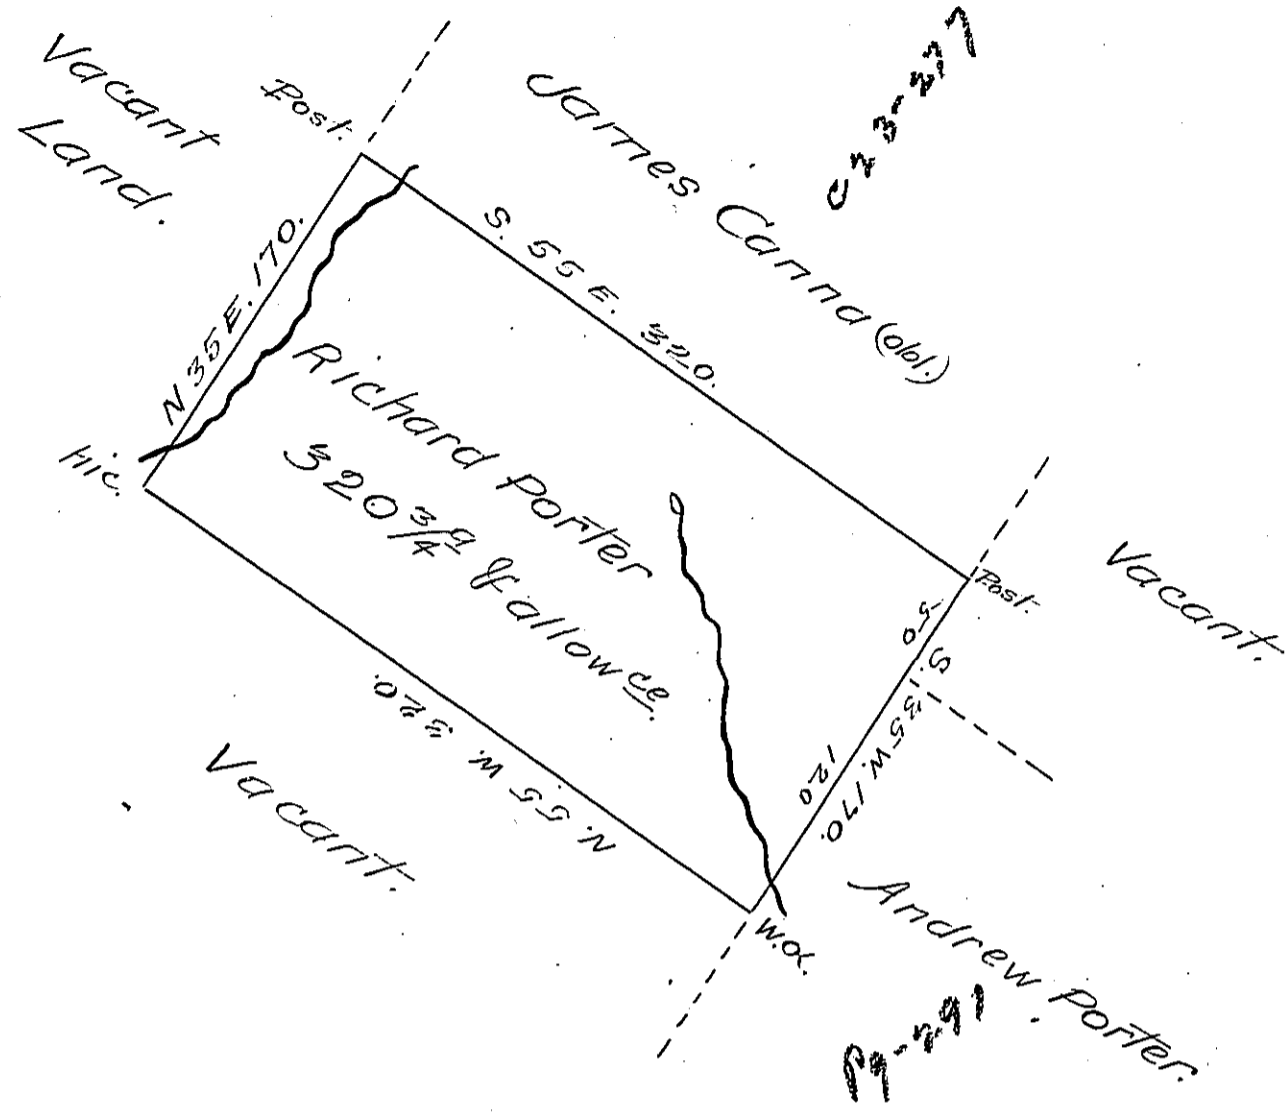 Vacant
Land.
Post.
James Canna (obl.)
C23-277
N 35 E. 170.
S. 55 E. 320.
Hic.
Richard Porter
320 3/4 a & allowce.
Post.
Vacant.
50
S. 35 W. 170.
120
N. 55 W. 320.
Vacant.
W.O.
Andrew Porter.
P9-291